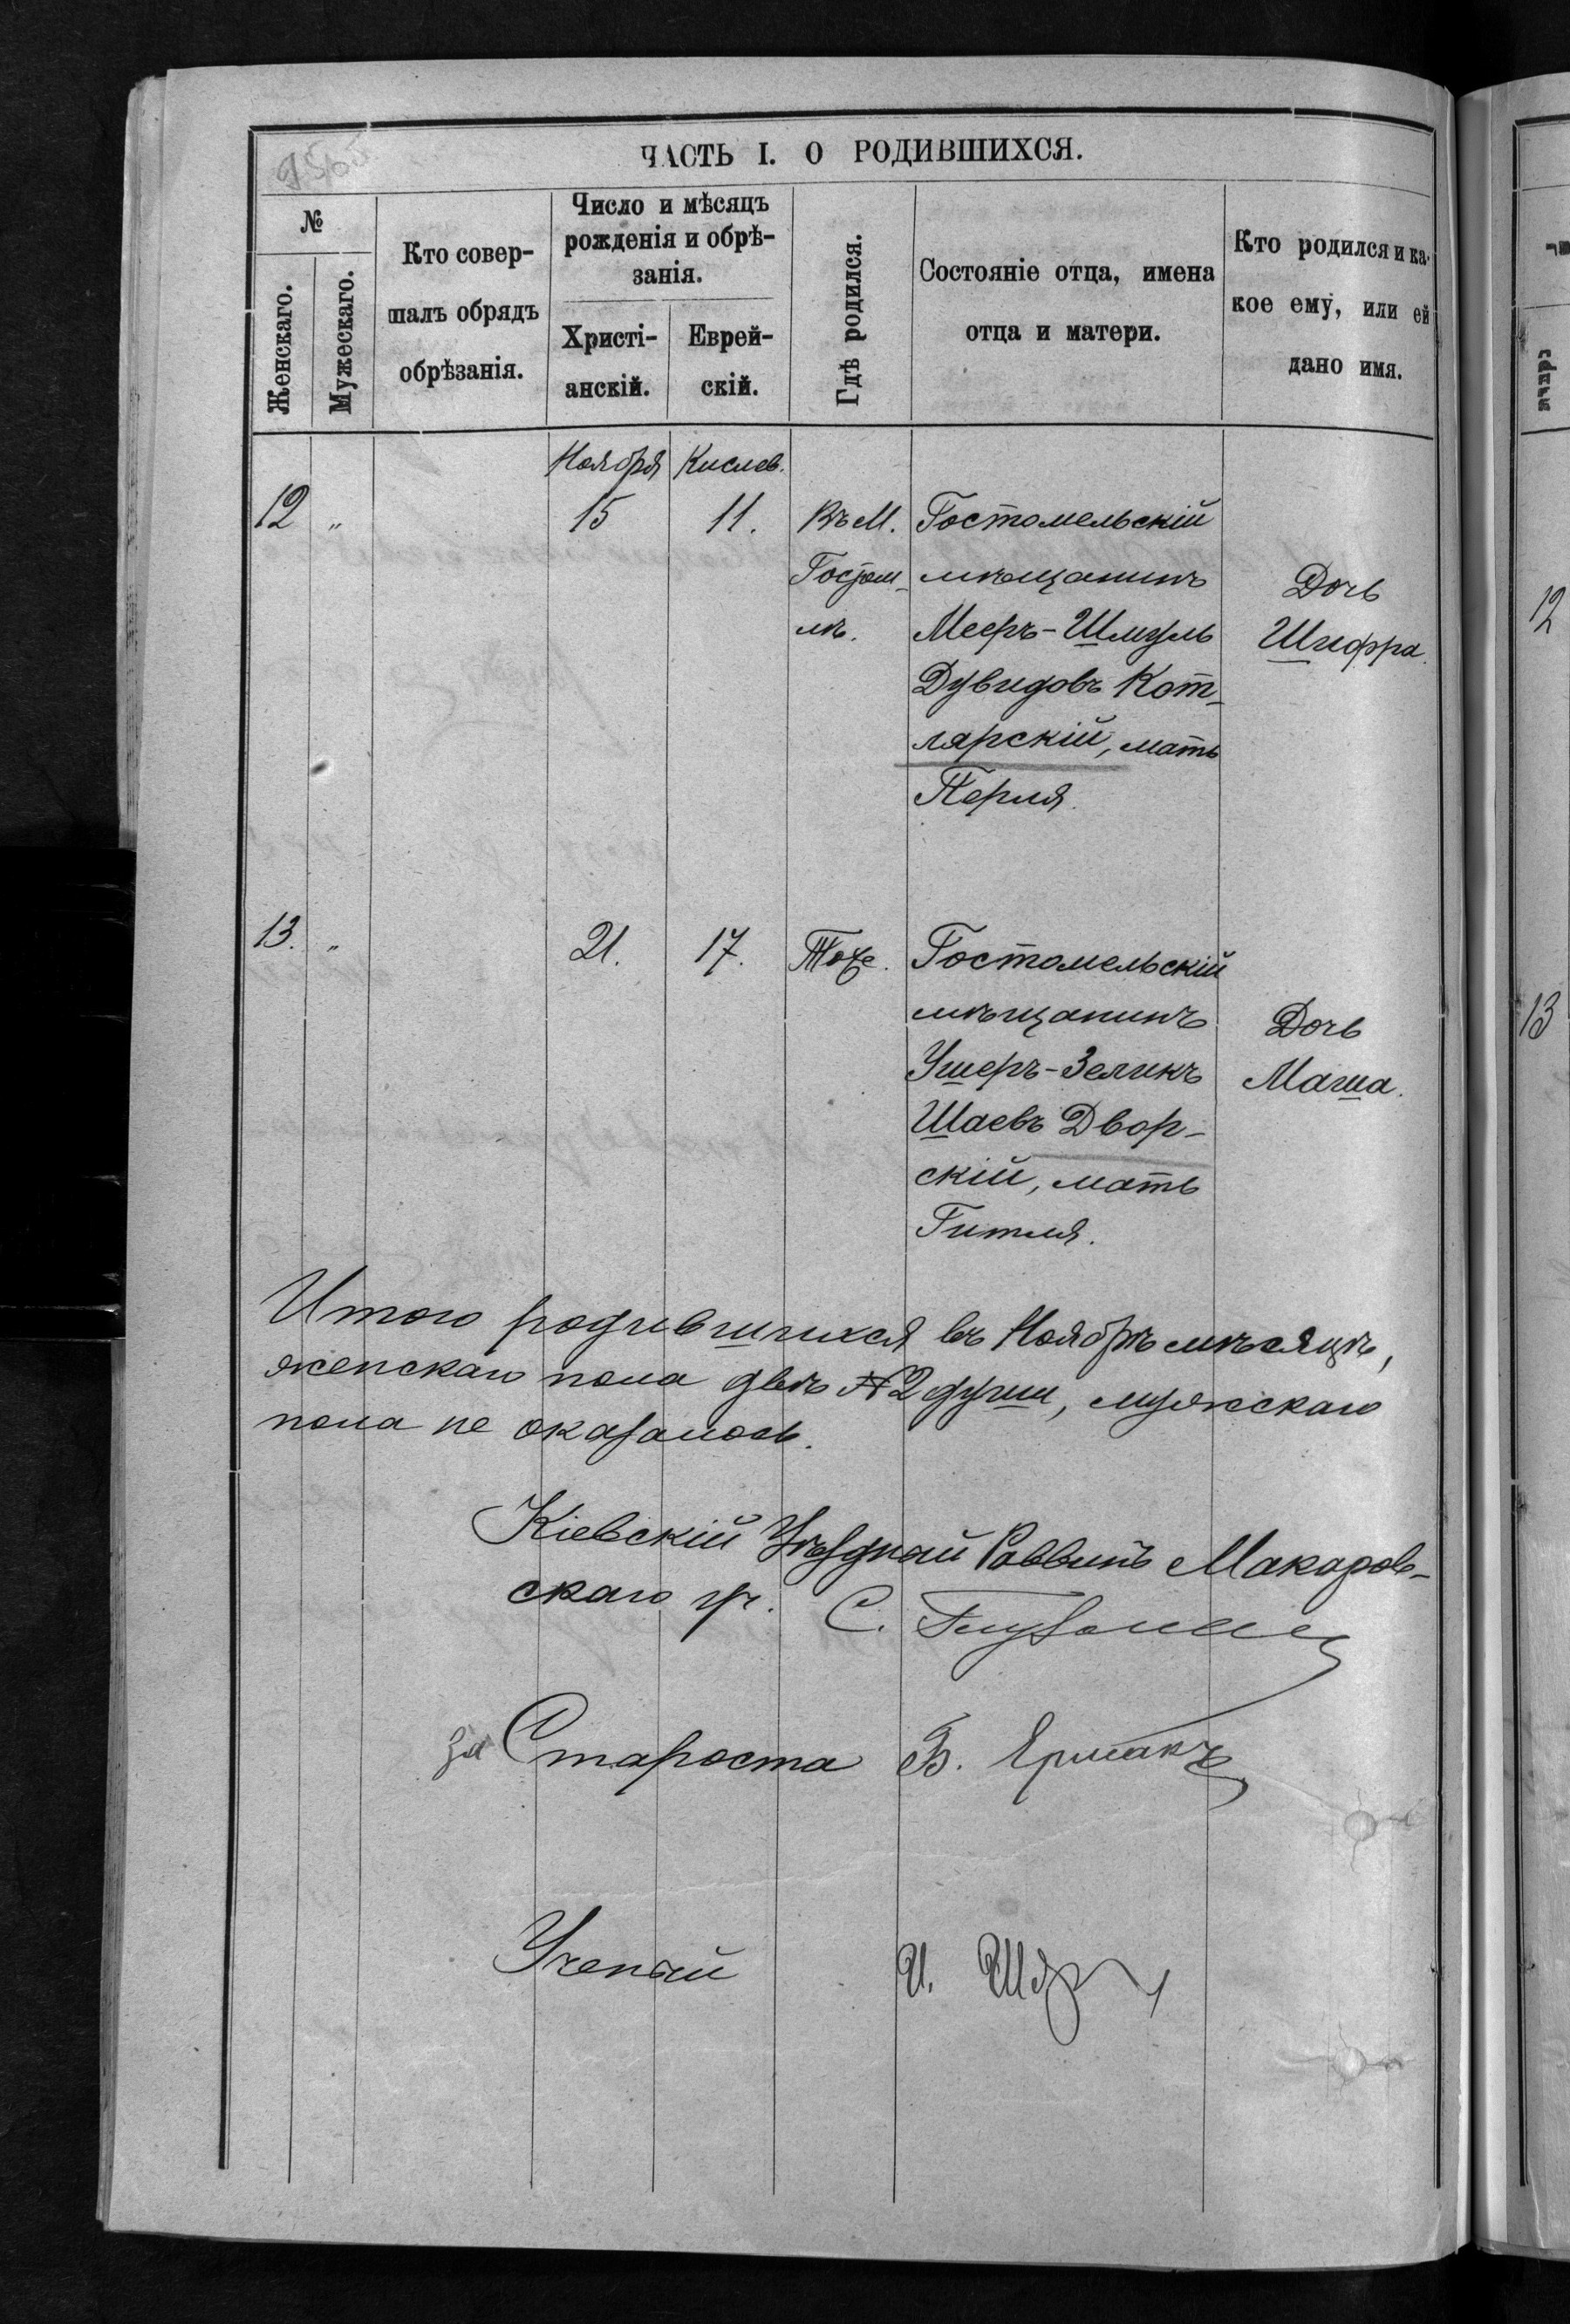 ЧАСТЬ I. О РОДИВШИХСЯ.
№
Женскаго.
Мужескаго.
Кто совер-
шалъ обрядъ
обрѣзанія.
Число и мѣсяцъ
рожденія и обрѣ-
занія.
Христі-
анскій.
Еврей-
скій.
Гдѣ родился.
Состояніе отца, имена
отца и матери.
Кто родился и ка-
кое ему, или ей
дано имя.
Ноября Кислев.
12 „ 15 11.
Въ М.
Гостом-
лѣ.
Гостомельскій
мѣщанинъ
Мееръ-Шмуль
Дувидовъ Кот-
лярскій, мать
Перля.
Дочь
Шифра.
13. „ 21. 17. Тоже.
Гостомельскій
мѣщанинъ
Ушеръ-Зеликъ
Шаевъ Двор-
скій, мать
Гитля.
Дочь
Маша.
Итого родившихся въ Ноябрѣ мѣсяцѣ,
женскаго пола двѣ 2 души, мужскаго
пола не оказалось.
Кіевскій Уѣздный Раввинъ Макаров-
скаго уч. С.
за Староста В. Ермакъ
Ученый И.
12
13